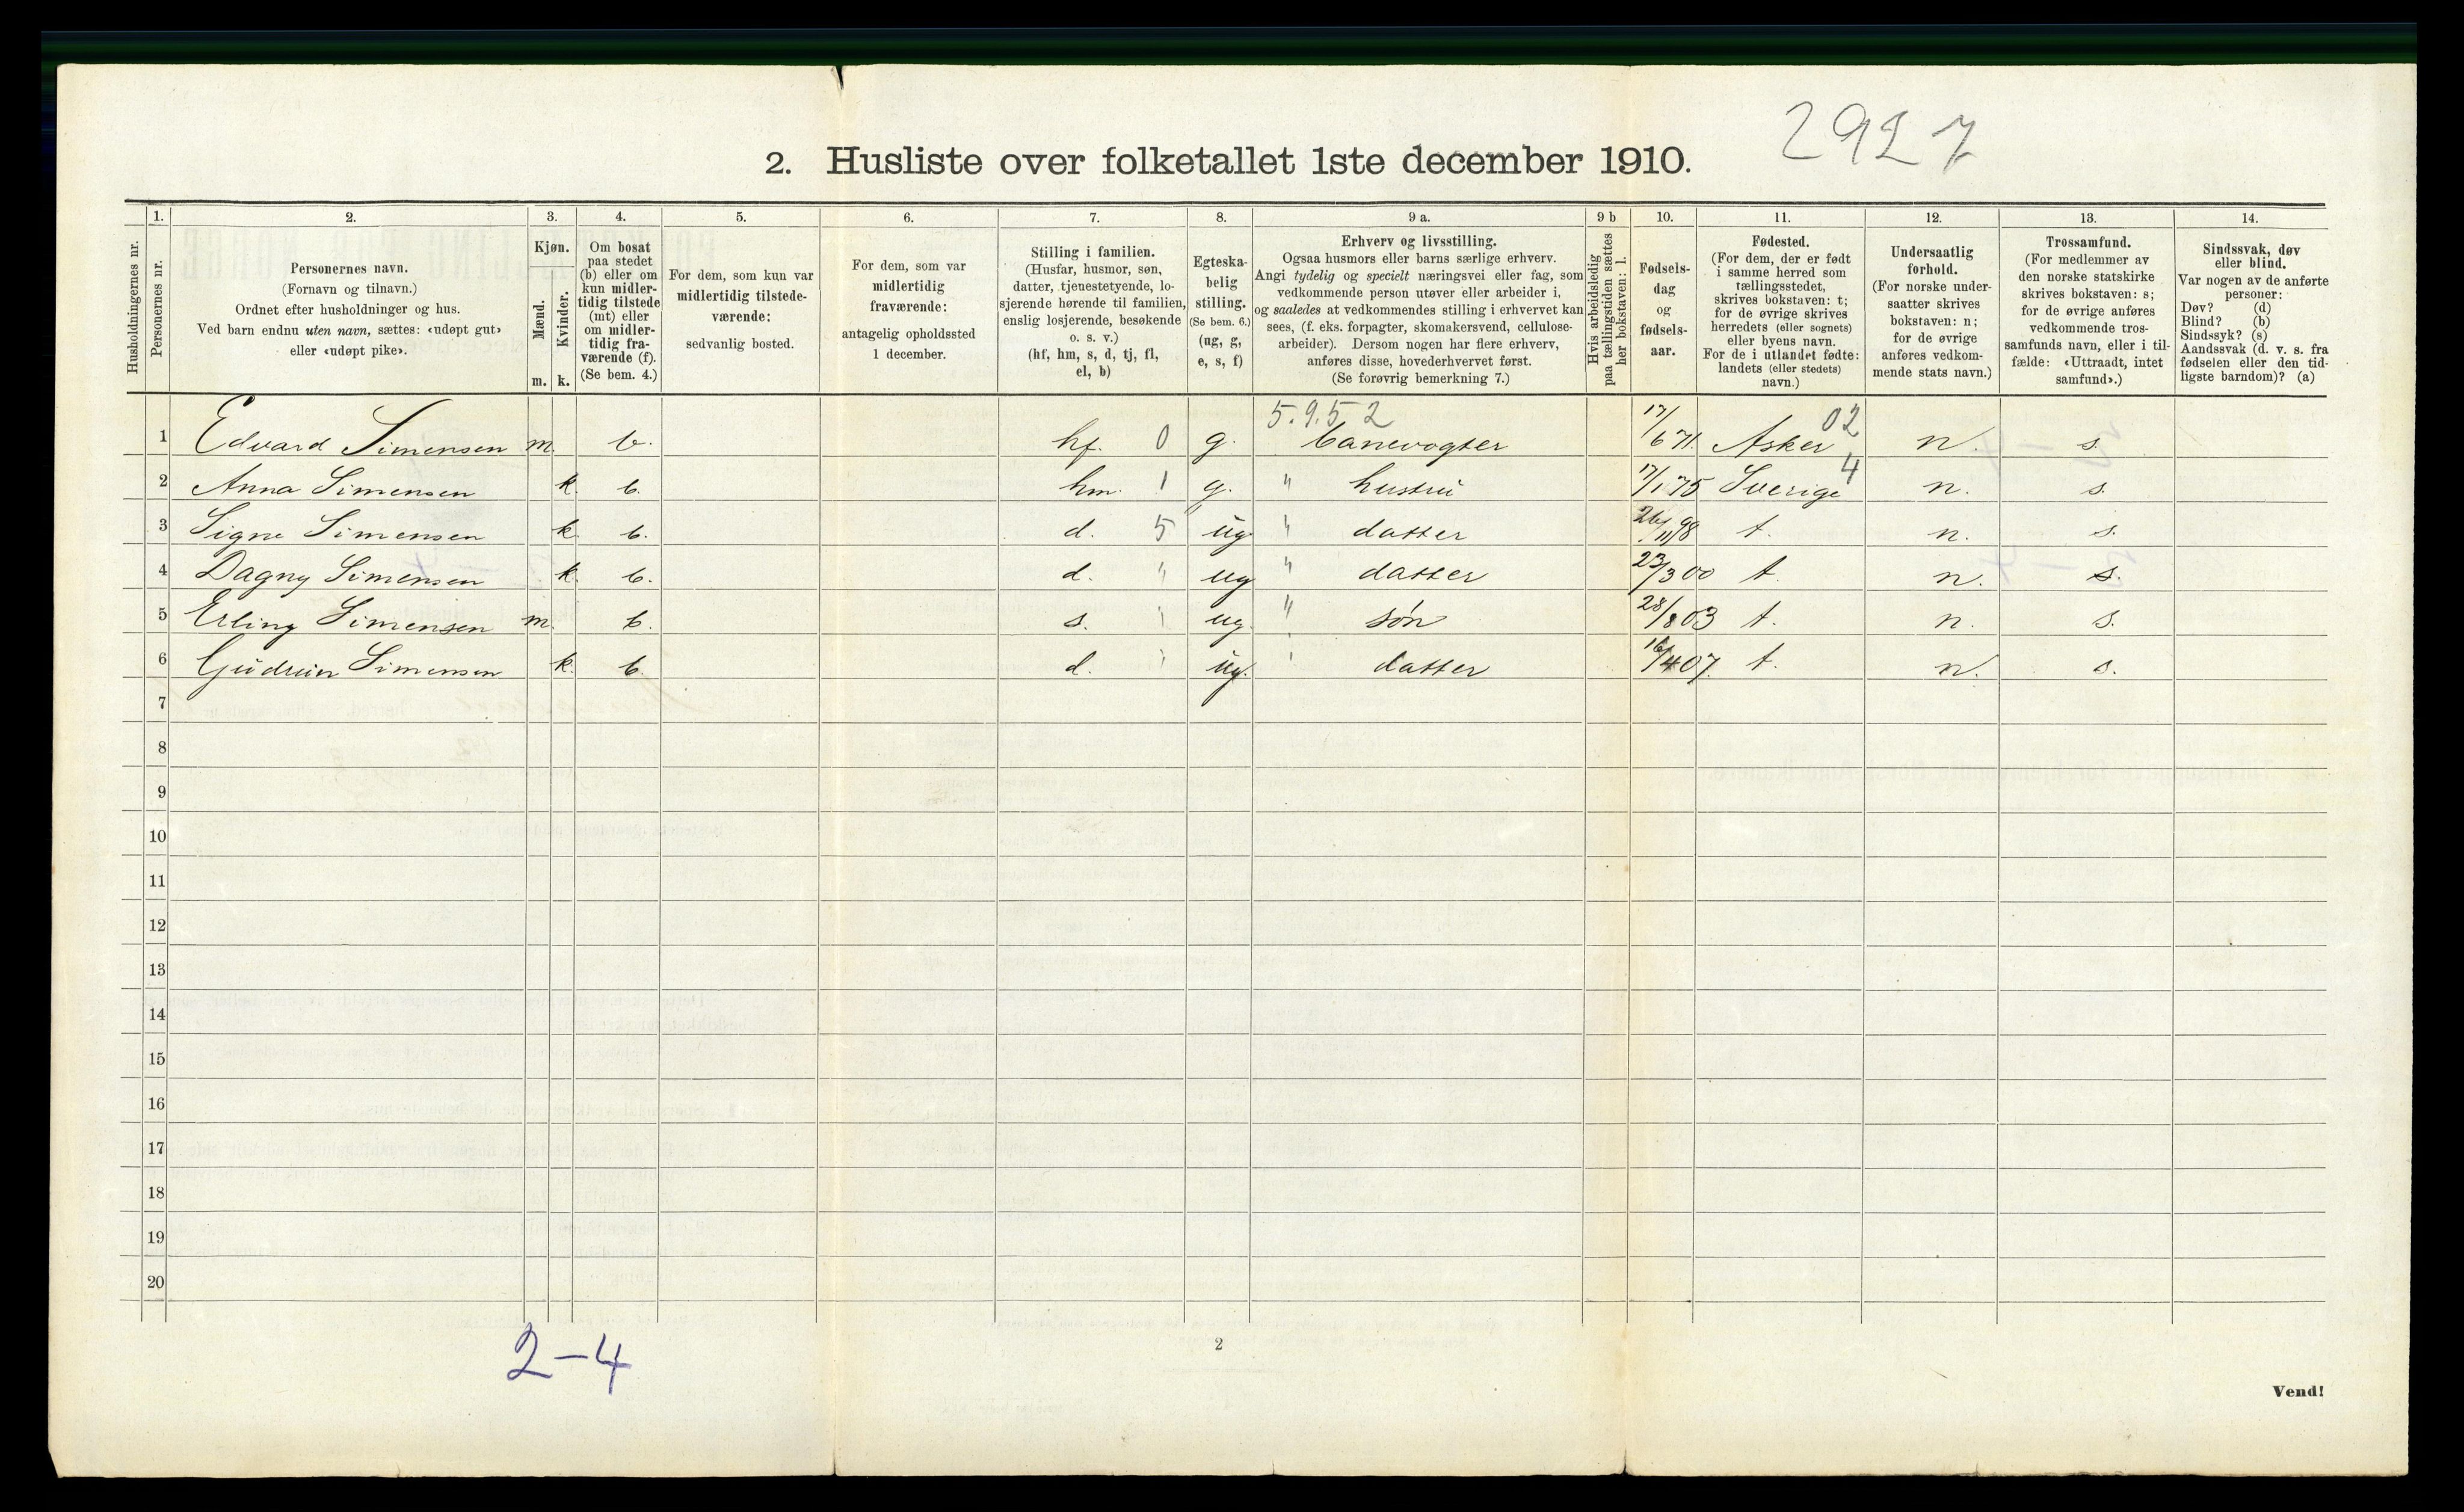 2927
2. Husliste over folketallet 1ste december 1910.
Husholdningernes nr.
1.
Personernes nr.
2.
Personernes navn.
(Fornavn og tilnavn.)
Ordnet efter husholdninger og hus.
Ved barn endnu uten navn, sættes: «udøpt gut»
eller «udøpt pike».
3.
Kjøn.
Mænd.
Kvinder.
m. k.
4.
Om bosat
paa stedet
(b) eller om
kun midler-
tidig tilstede
(mt) eller
om midler-
tidig fra-
værende (f).
(Se bem. 4.)
5.
For dem, som kun var
midlertidig tilstede-
værende:
sedvanlig bosted.
6.
For dem, som var
midlertidig
fraværende:
antagelig opholdssted
1 december.
7.
Stilling i familien.
(Husfar, husmor, søn,
datter, tjenestetyende, lo-
sjerende hørende til familien,
enslig losjerende, besøkende
o. s. v.)
(hf, hm, s, d, tj, fl,
el, b)
8.
Egteska-
belig
stilling.
(Se bem. 6.)
(ug, g,
e, s, f)
9 a.
Erhverv og livsstilling.
Ogsaa husmors eller barns særlige erhverv.
Angi tydelig og specielt næringsvei eller fag, som
vedkommende person utøver eller arbeider i,
og saaledes at vedkommendes stilling i erhvervet kan
sees, (f. eks. forpagter, skomakersvend, cellulose-
arbeider). Dersom nogen har flere erhverv,
anføres disse, hovederhvervet først.
(Se forøvrig bemerkning 7.)
9 b
Hvis arbeidsledig
paa tællingstiden sættes
her bokstaven: l.
10.
Fødsels-
dag
og
fødsels-
aar.
11.
Fødested.
(For dem, der er født
i samme herred som
tællingsstedet,
skrives bokstaven: t;
for de øvrige skrives
herredets (eller sognets)
eller byens navn.
For de i utlandet fødte:
landets (eller stedets)
navn.)
12.
Undersaatlig
forhold.
(For norske under-
saatter skrives
bokstaven: n;
for de øvrige
anføres vedkom-
mende stats navn.)
13.
Trossamfund.
(For medlemmer av
den norske statskirke
skrives bokstaven: s;
for de øvrige anføres
vedkommende tros-
samfunds navn, eller i til-
fælde: «Uttraadt, intet
samfund».)
14.
Sindssvak, døv
eller blind.
Var nogen av de anførte
personer:
Døv? (d)
Blind? (b)
Sindssyk? (s)
Aandssvak (d. v. s. fra
fødselen eller den tid-
ligste barndom)? (a)
5.9.52 02
1 Edvard Simensen m. b. hf. 0 g. banevogter 17/6 71. Asker n. s.
2 Anna Simensen k. b. hm. 1 g. " hustru 17/1 75 Sverige 4 n. s.
3 Signe Simensen k. b. d. 5 ug " datter 26/11 98 t. n. s.
4 Dagny Simensen k. b. d. " ug " datter 23/3 00 t. n. s.
5 Erling Simensen m. b. s. " ug. " søn 28/8 03 t. n. s.
6 Gudrun Simensen k. b. d. " ug. " datter 16/4 07. t. n. s.
7
8
9
10
11
12
13
14
15
16
17
18
19
20
2-4
2
Vend!